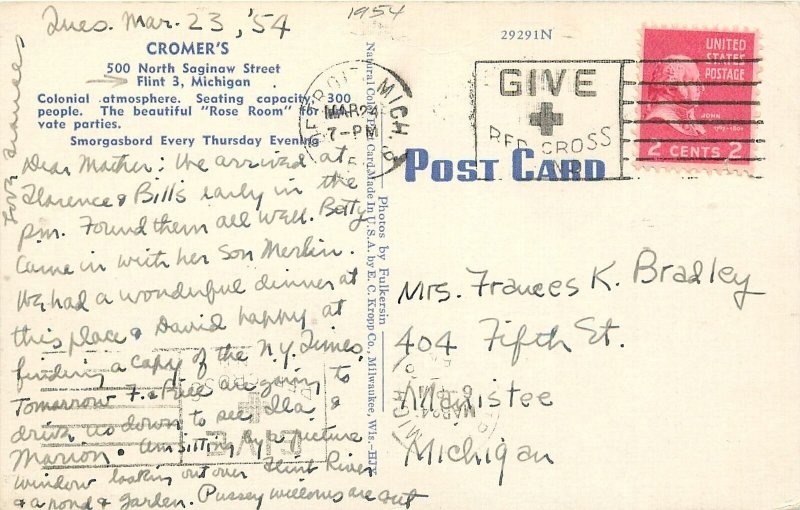 Tues. Mar. 23, '54
1954
CROMER'S
500 North Saginaw Street
Flint 3, Michigan
Colonial atmosphere. Seating capacity 300
people. The beautiful "Rose Room" for
vate parties.
Smorgasbord Every Thursday Evening
Dear Mother: We arrived at
Florence & Bill's early in the
pm. Found them all well. Betty
came in with her son Merlin.
We had a wonderful dinner at
this place & David happy at
finding a copy of the N.Y. Times.
Tomorrow F. & Bill are going to
drive us down to see Ila &
Marion. Am sitting by a picture
window looking out over Flint River
& a pond & garden. Pussey willows are out
Love Frances
Natural Color Post Card, Made in U.S.A. by E. C. Kropp Co., Milwaukee, Wis.-HJY
Photos by Fulkersin
29291N
POST CARD
MICH
MAR 24
7-PM
GIVE
RED CROSS
UNITED
STATES
POSTAGE
JOHN
2 CENTS 2
Mrs. Frances K. Bradley
404 Fifth St.
Manistee
Michigan
GIVE